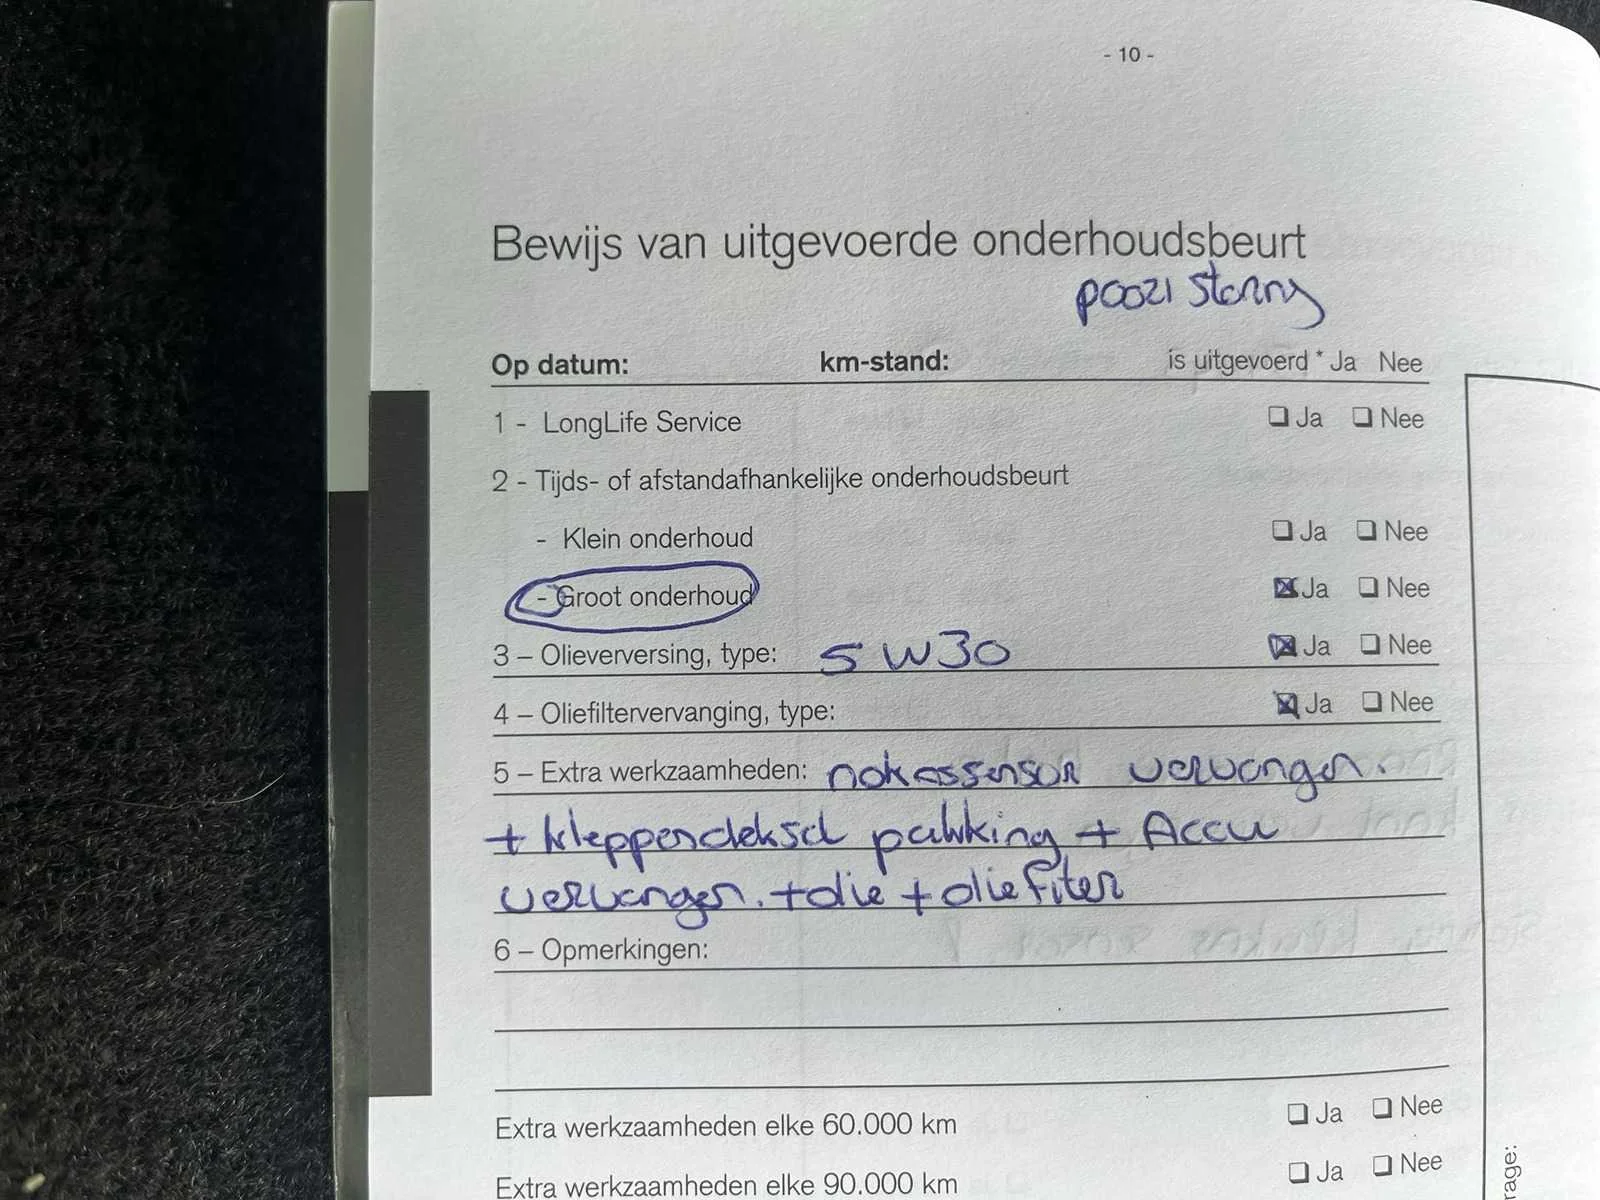 - 10 -
Bewijs van uitgevoerde onderhoudsbeurt
p0021 storing
Op datum: km-stand: is uitgevoerd * Ja Nee
1 - LongLife Service Ja Nee
2 - Tijds- of afstandafhankelijke onderhoudsbeurt
- Klein onderhoud Ja Nee
- Groot onderhoud Ja Nee
3 – Olieverversing, type: 5W30 Ja Nee
4 – Oliefiltervervanging, type: Ja Nee
5 – Extra werkzaamheden: nokassensor vervangen.
+ kleppendeksel pakking + Accu
vervangen. + olie + olie fiter
6 – Opmerkingen:
Extra werkzaamheden elke 60.000 km Ja Nee
Extra werkzaamheden elke 90.000 km Ja Nee
rage: